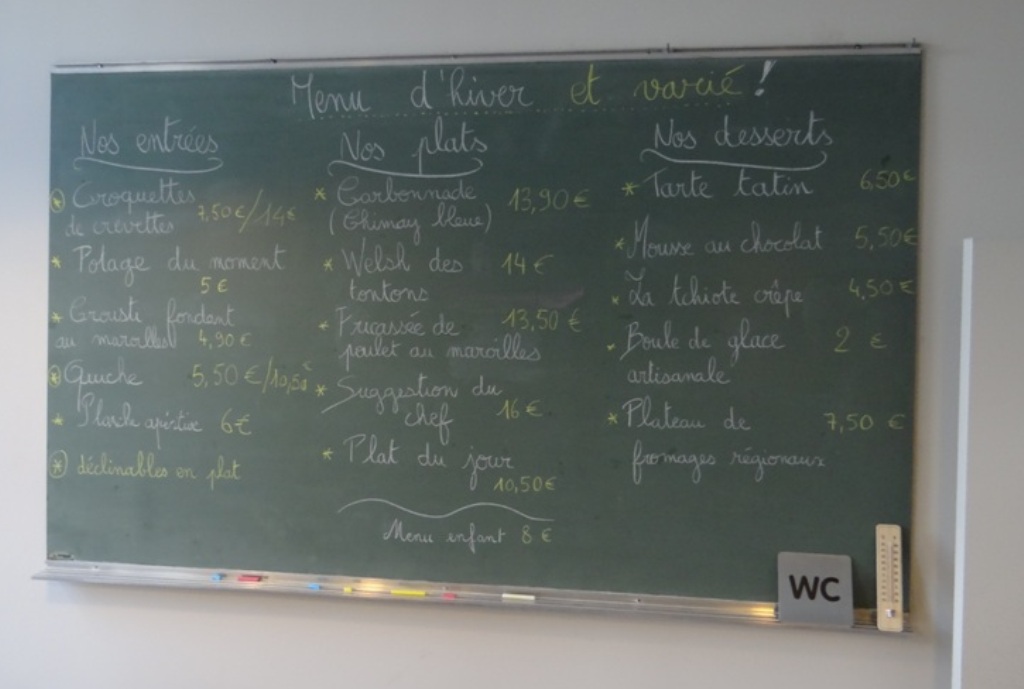 Menu d'hiver et varié !
Nos entrées
* Croquettes
de crevettes 7,50€/14€
* Potage du moment
5€
* Crousti fondant
au maroilles 4,90€
* Quiche 5,50€/10,50€
* Planche apéritive 6€
* déclinables en plat
Nos plats
* Carbonnade 13,90€
(Chimay bleue)
* Welsh des 14€
tontons
* Fricassée de 13,50€
poulet au maroilles
* Suggestion du
chef 16€
* Plat du jour
10,50€
Menu enfant 8€
Nos desserts
* Tarte tatin 6,50€
* Mousse au chocolat 5,50€
* La tchiote crêpe 4,50€
* Boule de glace 2€
artisanale
* Plateau de 7,50€
fromages régionaux
WC